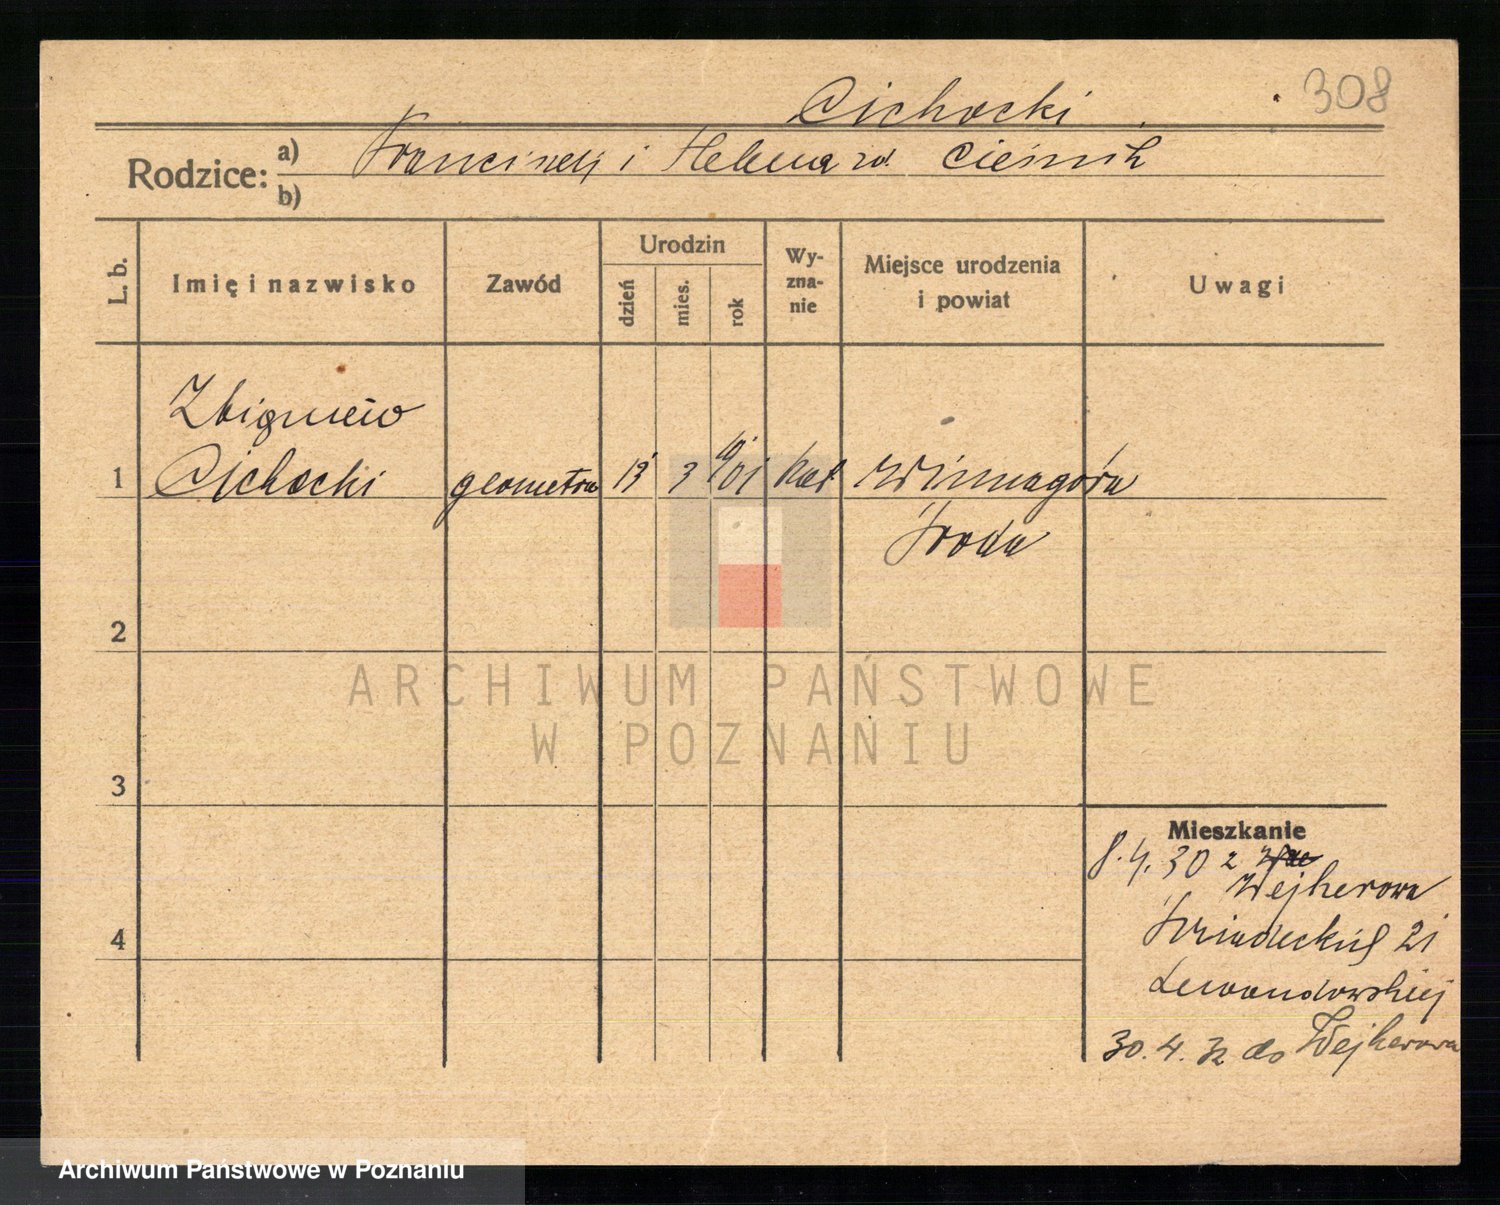 308
Cichocki
Rodzice: a) Franciszek i Helena zd. Cieśnik
b)
L. b.
Imię i nazwisko
Zawód
Urodzin
dzień
mies.
rok
Wy-
zna-
nie
Miejsce urodzenia
i powiat
Uwagi
Zbigniew
1 Cichocki geometra 13 3 901 kat. Winnagóra
Środa
2
3
4
Mieszkanie
8.4.30 z
Wejherowa
21
Lewandowskiej
30.4.32 do Wejherowa
ARCHIWUM PAŃSTWOWE
W POZNANIU
Archiwum Państwowe w Poznaniu